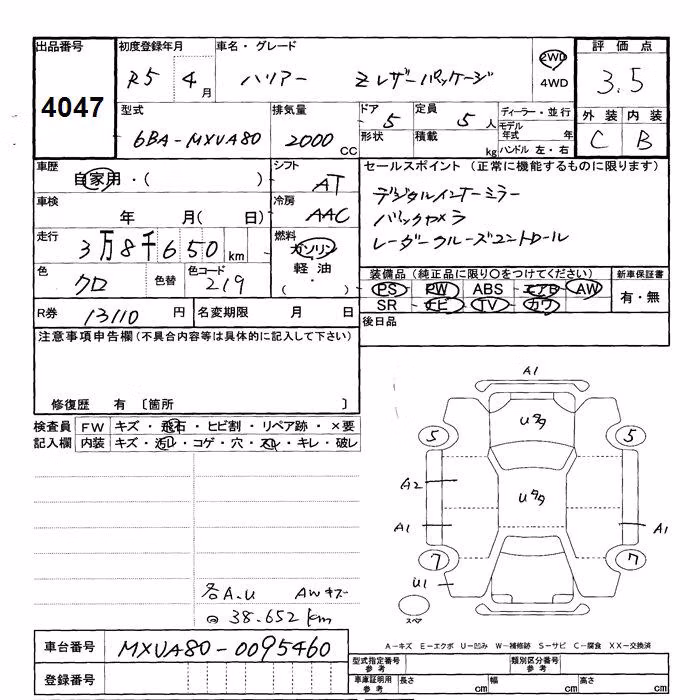 出品番号 初度登録年月 車名・グレード 評価点
4047 R5 4月 ハリアー Zレザーパッケージ 2WD 4WD 3.5
型式 排気量 ドア 定員 ディーラー・並行 外装 内装
6BA-MXUA80 2000CC 5 5人 モデル年式 年 C B
形状 積載 kg ハンドル 左・右
車歴 シフト セールスポイント (正常に機能するものに限ります)
自家用・( ) AT デジタルインナーミラー
車検 冷房 バックカメラ
年 月( 日) AAC レーダークルーズコントロール
走行 燃料
3万8千650km ガソリン 軽油 ( . )
色 色替 色コード 装備品 (純正品に限り○をつけてください) 新車保証書
クロ 219 PS PW ABS エアB AW 有・無
SR ナビ TV カワ
R券 13110円 名変期限 月 日 後日品
注意事項申告欄 (不具合内容等は具体的に記入して下さい)
修復歴 有 〔箇所 〕
検査員 FW キズ・飛石・ヒビ割・リペア跡・×要
記入欄 内装 キズ・汚れ・コゲ・穴・スレ・キレ・破レ
A1
Uタタ
5 5
A2 Uタタ
A1 A1
7 7
U1
スペア
各A.U AWキズ
@ 38.652km
A－キズ E－エクボ U－凹み W－補修跡 S－サビ C－腐食 XX－交換済
車台番号 MXUA80-0095460
型式指定番号 参考 類別区分番号 参考
登録番号 車庫証明用 参考 長さ cm 幅 cm 高さ cm